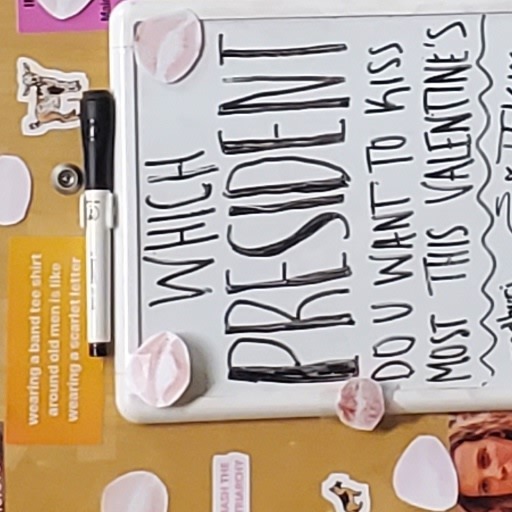 wearing a band tee shirt
around old men is like
wearing a scarlet letter
WHICH
PRESIDENT
DO U WANT TO KISS
MOST THIS VALENTINE'S